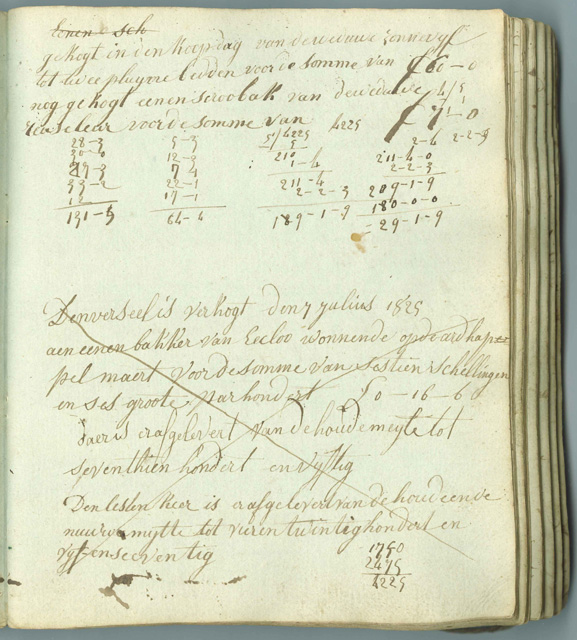 gekogt in den koopdag van de weduwe
tot twee pluyen bedden voor de somme van £ 60 - 0
nog gekogt eenen van de weduwe
voor de somme van £ 71 - 0
4225
4/5
2-4 2-2-9
28-3 5-3 5/4225
30-0 12-3 5
29-3 7-4 210 211-4-0
33-2 22-1 1-4 2-2-3
12 17-1 211-4
2-2-3 209-1-9
131-5 64-4 189-1-9 180-0-0
29-1-9
Den verseel is verkogt den 7 julius 1825
aen eenen bakker van Eecloo wonnende op
pel maert voor de somme van sestien schellingen
en ses groote par hondert £0-16-6
daer is eraf gelevert van de houde meyte tot
seventhien hondert en vyftig
Den lesten keer is eraf gelevert van de houd eende
nieuwe mytte tot vieren twintig hondert en
vyfenseventig
1750
2475
4225